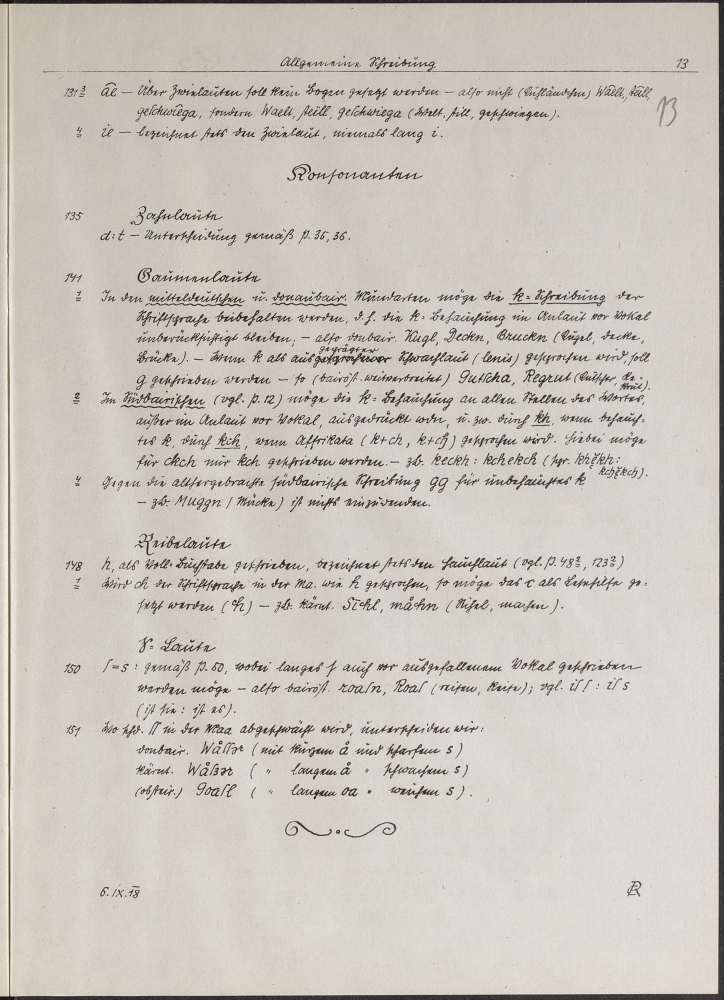 Allgemeine Schreibung. 13
131 3 a͡e — Über Zwielauten soll kein Bogen gesetzt werden – also nicht (Kuhländchen) Wa͡ellt, sta͡ill,
geschwie͡ga, sondern Waelt, steill, geschwiega (Welt, still, geschwiegen).
13
4 ie — bezeichnet stets den Zwielaut, niemals lang i.
Konsonanten
135 Zahnlaute
d:t — Unterscheidung gemäß p. 35, 36.
141 Gaumenlaute
1 In den mitteldeutschen u. donaubair. Mundarten möge die k-Schreibung der
Schriftsprache beibehalten werden, d. h. die k-Behauchung im Anlaut vor Vokal
unberücksichtigt bleiben, – also donbair. Kugl, Deckn, Bruckn (Kugel, Decke,
Brücke). – Wenn k als ausgeprägter Schwachlaut (lenis) gesprochen wird, soll
g geschrieben werden – so (bairöst. weitverbreitet) Gutscha, Regrut (Kutscher, Rekrut).
2 Im Südbairischen (vgl. p. 12) möge die k-Behauchung an allen Stellen des Wortes,
außer im Anlaut vor Vokal, ausgedrückt wdn, u. zw. durch kh, wenn behauchtes
k, durch kch, wenn Affrikata (k+ch, k+ch) gesprochen wird. Hiebei möge
für ckch nur kch geschrieben werden. – zb. keckh: kchekch (spr. khekh: kchekch).
4 Gegen die althergebrachte südbairische Schreibung gg für unbehauchtes k
– zb. Muggn (Mücke) ist nichts einzuwenden.
Reibelaute
148 h, als Voll-Buchstabe geschrieben, bezeichnet stets den Hauchlaut (vgl. p. 48 2, 123 2)
1 Wird ch der Schriftsprache in der Ma. wie h gesprochen, so möge das c als Lesehilfe ge-
setzt werden (ch) – zb. kärnt. Sichl, måchn (Sichel, machen).
S-Laute
150 ſ=s: gemäß p. 50, wobei langes ſ auch vor ausgefallenem Vokal geschrieben
werden möge – also bairöst. roaſn, Roaſ (reisen, Reise); vgl. iſ ſ : iſ s
(ist sie: ist es).
151 Wo schd. ſſ in der Maa abgeschwächt wird, unterscheiden wir:
donbair. Wåſſer (mit kurzem å und scharfem s)
kärnt. Wåßer ( " langem å " schwachem s)
(obsteir.) Goaſl ( " langem oa " weichem s).
6.IX.18 R